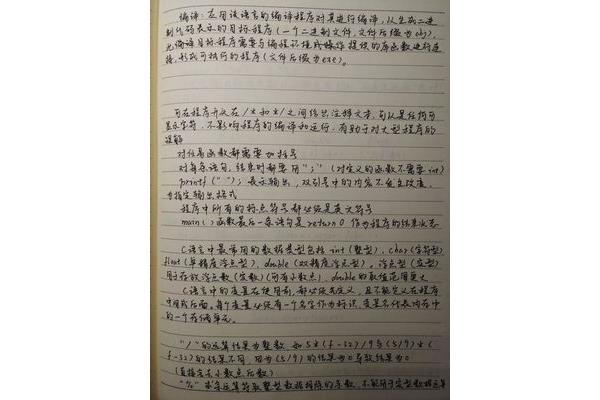 编译：应用该语言的编译程序对其进行编译，以生成二进
制代码表示的目标程序（一个二进制文件，文件后缀为obj），
编译目标程序需要与编程环境或操作提供的库函数进行连
接，形成可执行的程序（文件后缀为exe）。
可在程序开头在/*和*/之间给出注释文本，可以是任何可
显示字符，不影响程序的编译和运行，有助于对大型程序的
理解
对任意函数都需要加括号
对每条语句，结束时都要用"；"（对定义的函数不需要 int）
printf(" "); 表示输出，双引号中的内容不会被改变，
为指定输出格式
程序中所有的标点符号都必须是英文符号
main()函数最后一条语句是return 0 作为程序的结束状态
C语言中最常用的数据类型包括 int（整型），char（字符型）
float（单精度浮点型），double（双精度浮点型），浮点型（实型）
用于存放浮点数（实数）（可有小数点），double的取值范围更大
C语言中的变量在使用前，都必须先定义，且不能定义在程序
中间或后面。每个变量必须有一个名字作为标识，变量名代表内存中
的一个存储单元。
"/"的运算结果为整数，如5*(f-32)/9与(5/9)*(
f-32)的结果不同，因为(5/9)的结果为0导致结果为0
（直接舍去小数点后数）
"%"求余运算符取整型数据相除的余数，不能用于实型数据运算